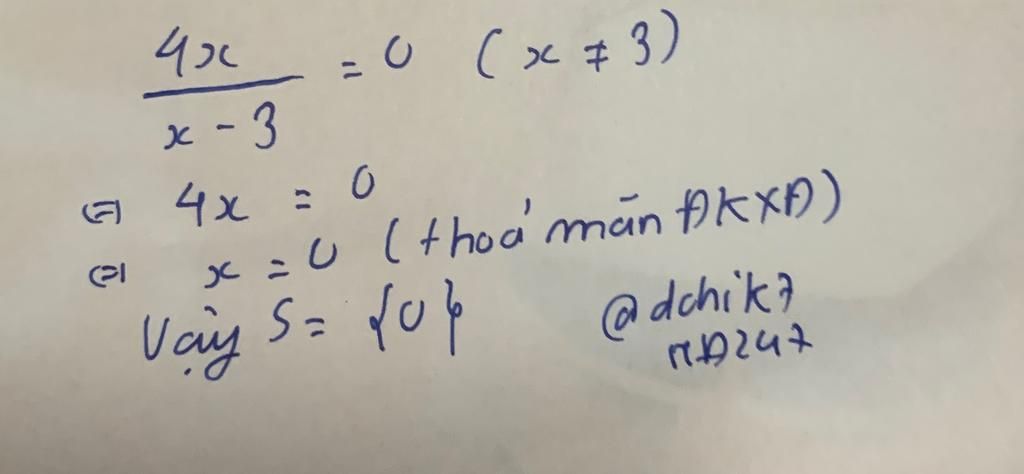 4x/(x - 3) = 0 (x ≠ 3)
⇔ 4x = 0
⇔ x = 0 (thoả mãn ĐKXĐ)
Vậy S = {0}
@dchik7